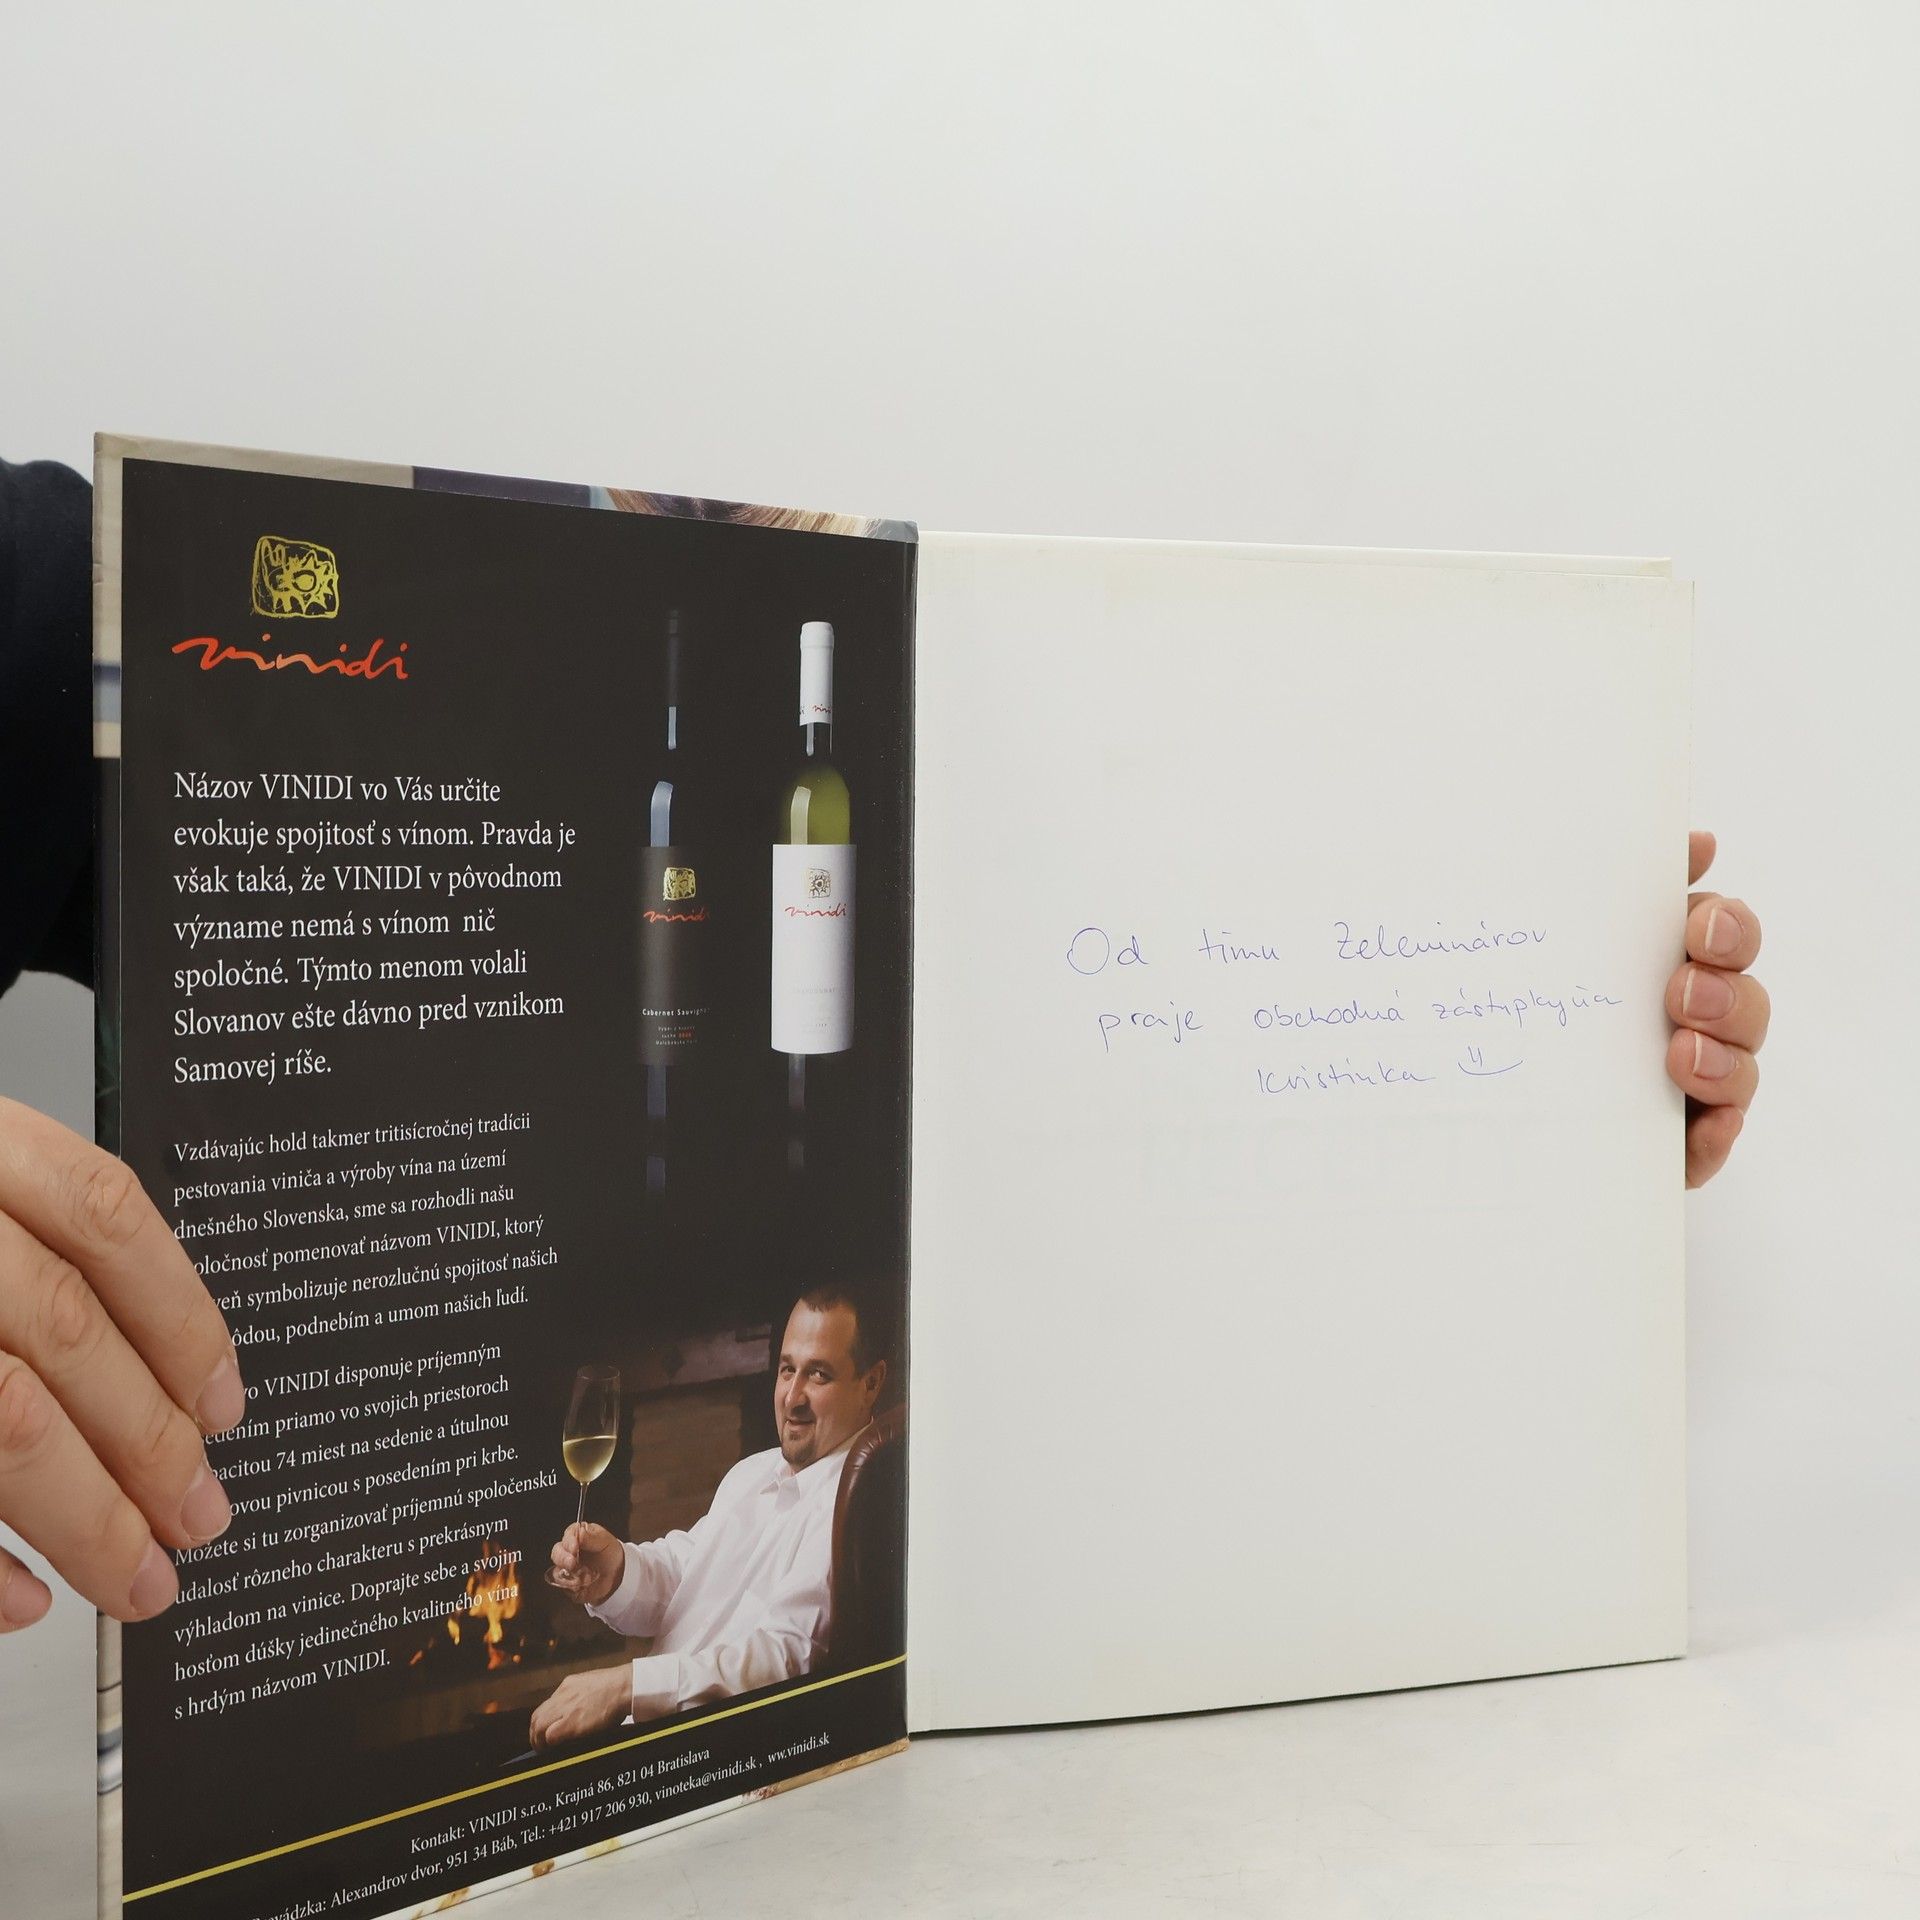 vinidi
Názov VINIDI vo Vás určite
evokuje spojitosť s vínom. Pravda je
však taká, že VINIDI v pôvodnom
význame nemá s vínom nič
spoločné. Týmto menom volali
Slovanov ešte dávno pred vznikom
Samovej ríše.
Vzdávajúc hold takmer tritisícročnej tradícii
pestovania viniča a výroby vína na území
dnešného Slovenska, sme sa rozhodli našu
oločnosť pomenovať názvom VINIDI, ktorý
veň symbolizuje nerozlučnú spojitosť našich
ôdou, podnebím a umom našich ľudí.
vo VINIDI disponuje príjemným
edením priamo vo svojich priestoroch
pacitou 74 miest na sedenie a útulnou
ovou pivnicou s posedením pri krbe.
Možete si tu zorganizovať príjemnú spoločenskú
udalosť rôzneho charakteru s prekrásnym
výhladom na vinice. Doprajte sebe a svojim
hosťom dúšky jedinečného kvalitného vína
s hrdým názvom VINIDI.
vinidi
Cabernet Sauvign
vinidi
Kontakt: VINIDI s.r.o., Krajná 86, 821 04 Bratislava
vádzka: Alexandrov dvor, 951 34 Báb, Tel.: +421 917 206 930, vinoteka@vinidi.sk , ww.vinidi.sk
Od tímu Zeleninárov
praje obchodná zástupkyňa
Kristínka